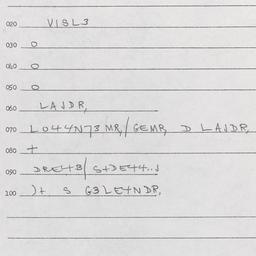 020 VISL3
030 O
040 O
050 O
060 LAJDR,
070 LO44N73 MR,/GEMR, D LAJDR,
080 +
090 DRE4B/ S+DE44..J
100 )+ S G3LE+NDR,